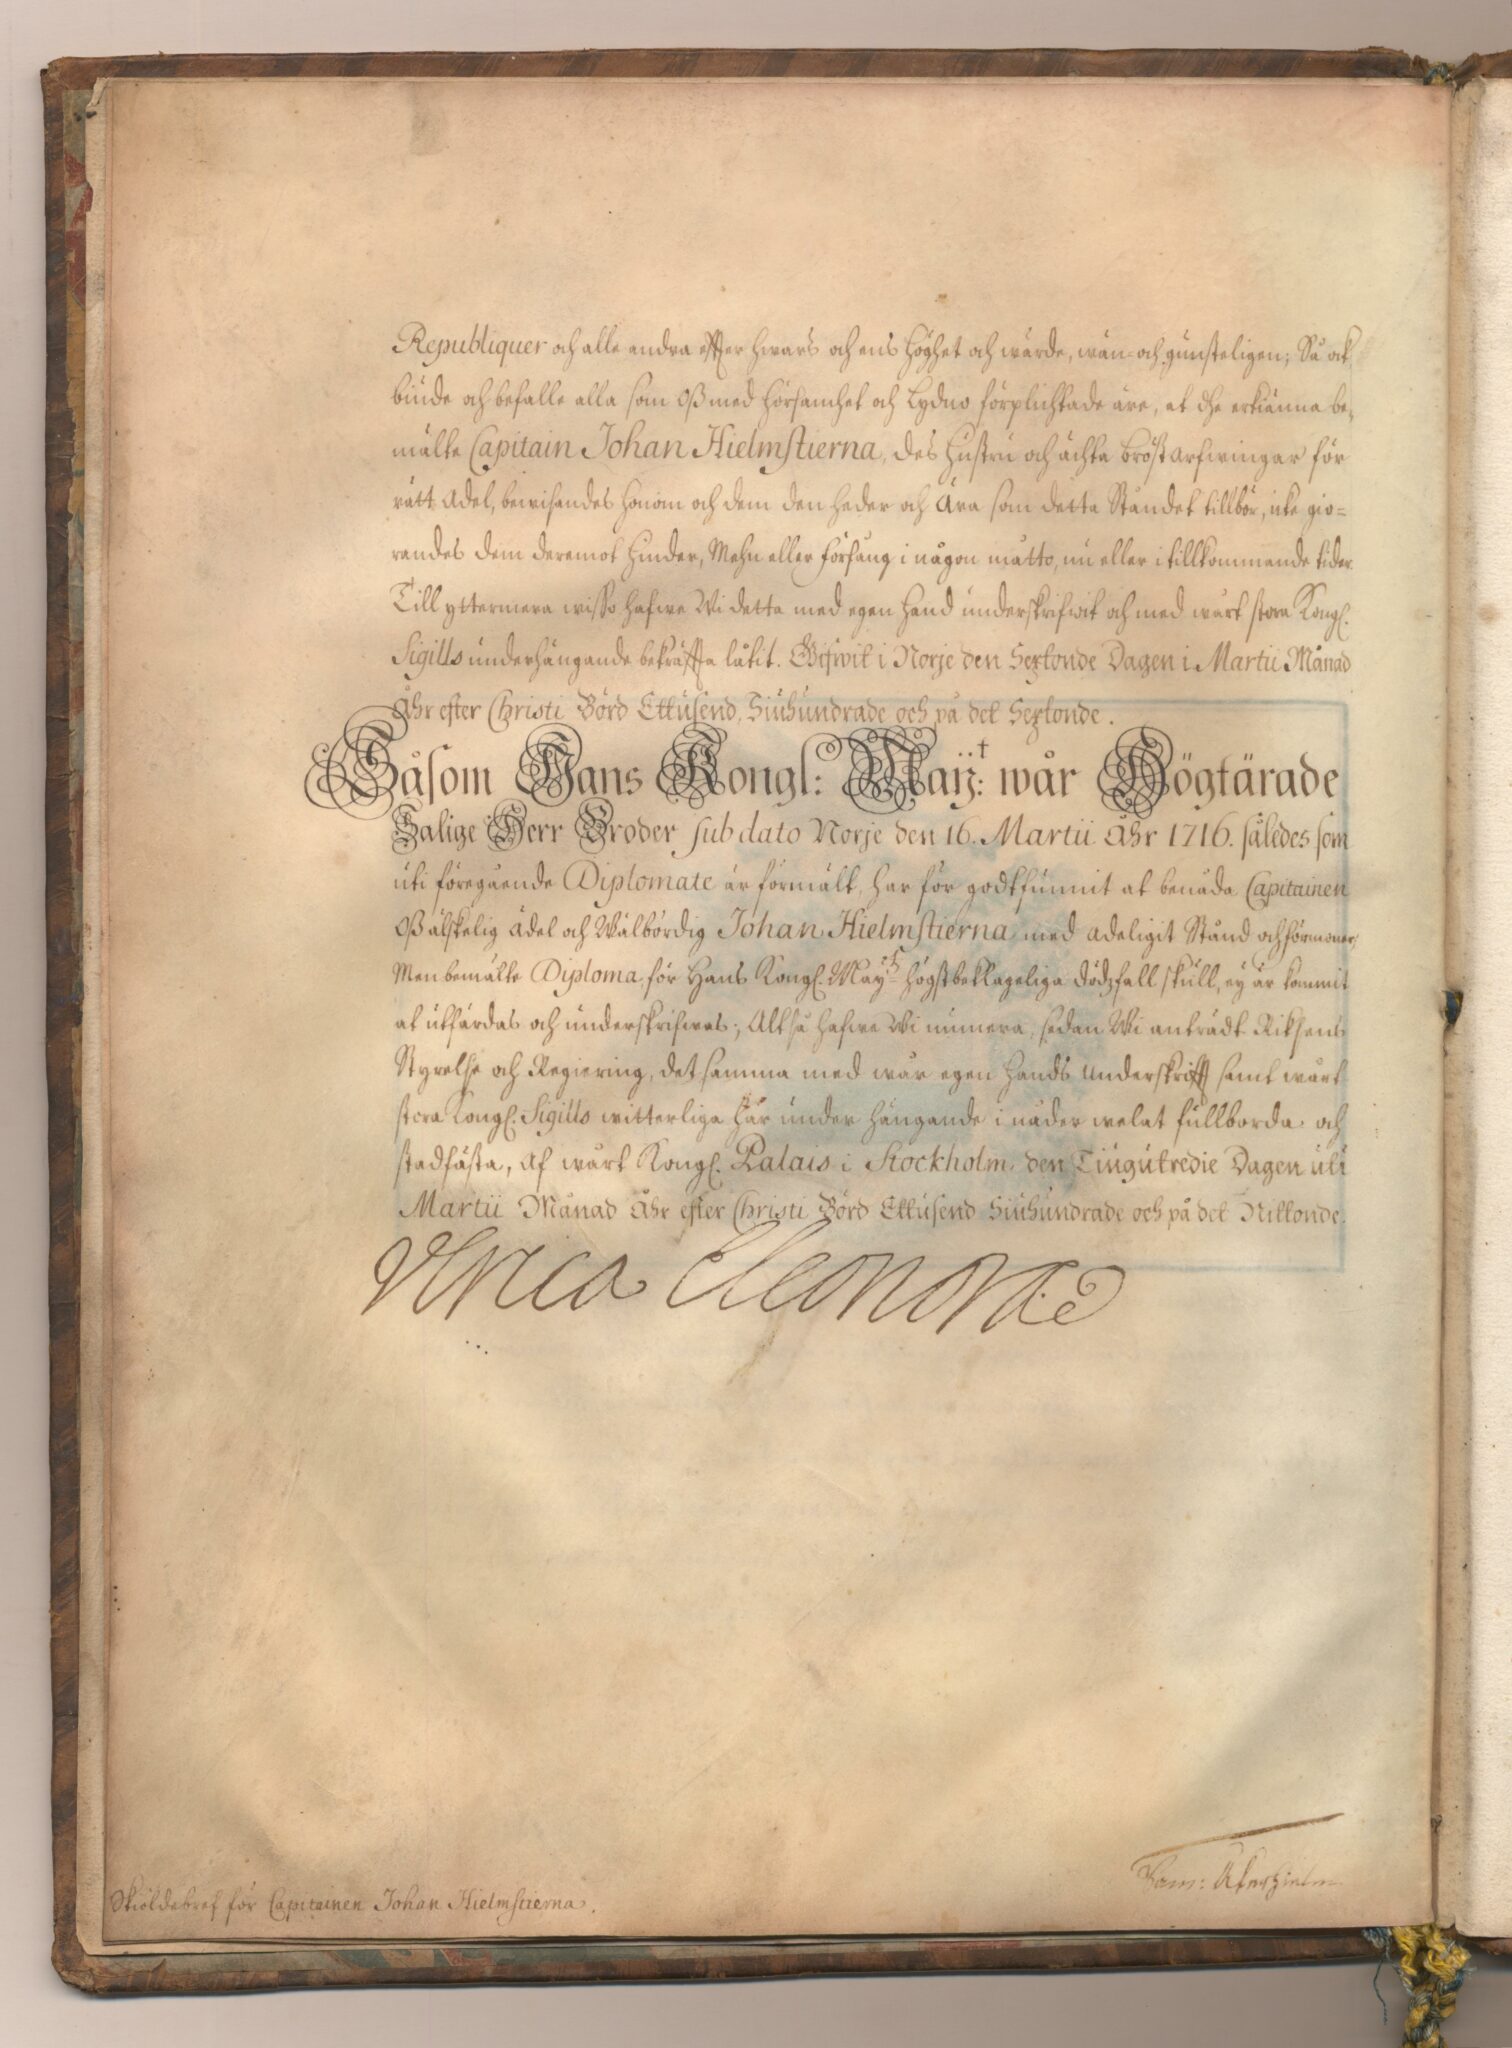 Republiquer och alle andra effter hwars och ens Höghet och wärde, wän- och gunsteligen; Så ock
biude och befalle alla som Oß med hörsamhet och Lydno förplichtade äre, at dhe erkiänna be-
mälte Capitain Johan Hielmstierna, des Hustru och ächta bröst Arfwingar för
rätt Adel, bewisandes honom och dem den heder och Ära som detta Ståndet tillbör, icke giö-
randes dem deremot Hinder, Mehn eller förfång i någon måtto, nu eller i tillkommande tider.
Till yttermera wisso hafwe Wi detta med egen Hand underskrifwit och med wårt stora Kongl.
Sigills underhängande bekräffta låtit. Gifwit i Norje den Sextonde Dagen i Martii Månad
Åhr efter Christi Börd Ettusend, Siuhundrade och på det Sextonde.
Såsom Hans Kongl: Maij:t wår Högtärade
Salige Herr Broder sub dato Norje den 16. Martii Åhr 1716. således som
uti föregående Diplomate är förmält, har för godtfunnit at benåda Capitainen
Oß älskelig Ädel och Wälbördig Johan Hielmstierna med adeligit Stånd och förmoner;
Men bemälte Diploma för Hans Kongl. Maytz högstbeklageliga dödzfall skull, ey är kommit
at utfärdas och underskrifwas; Altså hafwe Wi numera, sedan Wi anträdt Riksens
Styrelse och Regiering, det samma med wår egen Hands Underskrifft samt wårt
stora Kongl. Sigills witterliga här under hängande i nåder welat fullborda och
stadfästa, Af wårt Kongl. Palais i Stockholm, den Tiugutredie Dagen uti
Martii Månad Åhr efter Christi Börd Ettusend Siuhundrade och på det Nittonde.
Ulrica Eleonora
Skiöldebref för Capitainen Johan Hielmstierna.
Sam: Åkerhielm